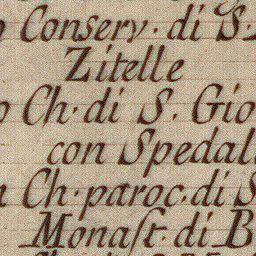 Conserv. di S.
Zitelle
Ch. di S. Gio
con Spedal
Ch. paroc. di S
Monast. di B